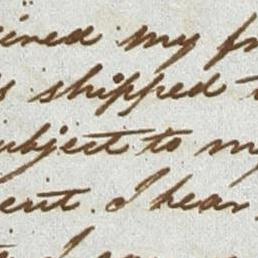 ined my fr
s shipped t
ubject to my
ent. I hear